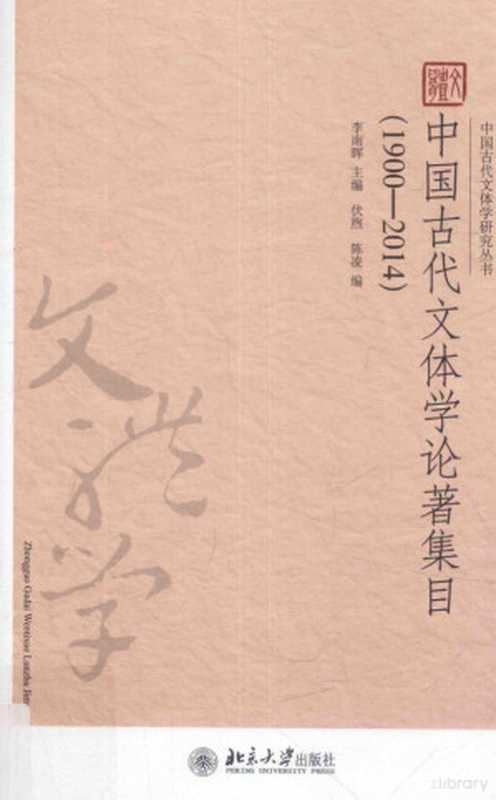 中国古代文体学研究丛书
文體
中国古代文体学论著集目
(1900—2014)
李南晖 主编 伏煦 陈凌 编
文体学
Zhongguo Gudai Wentixue Lunzhu Jim
北京大学出版社
PEKING UNIVERSITY PRESS
library